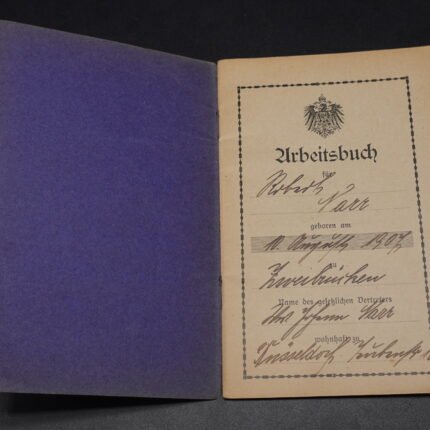 Arbeitsbuch
für
Robert
Narr
geboren am
10. August 1907
zu
Zweibrücken
Name des gesetzlichen Vertreters
Johann Narr
wohnhaft zu
Düsseldorf,